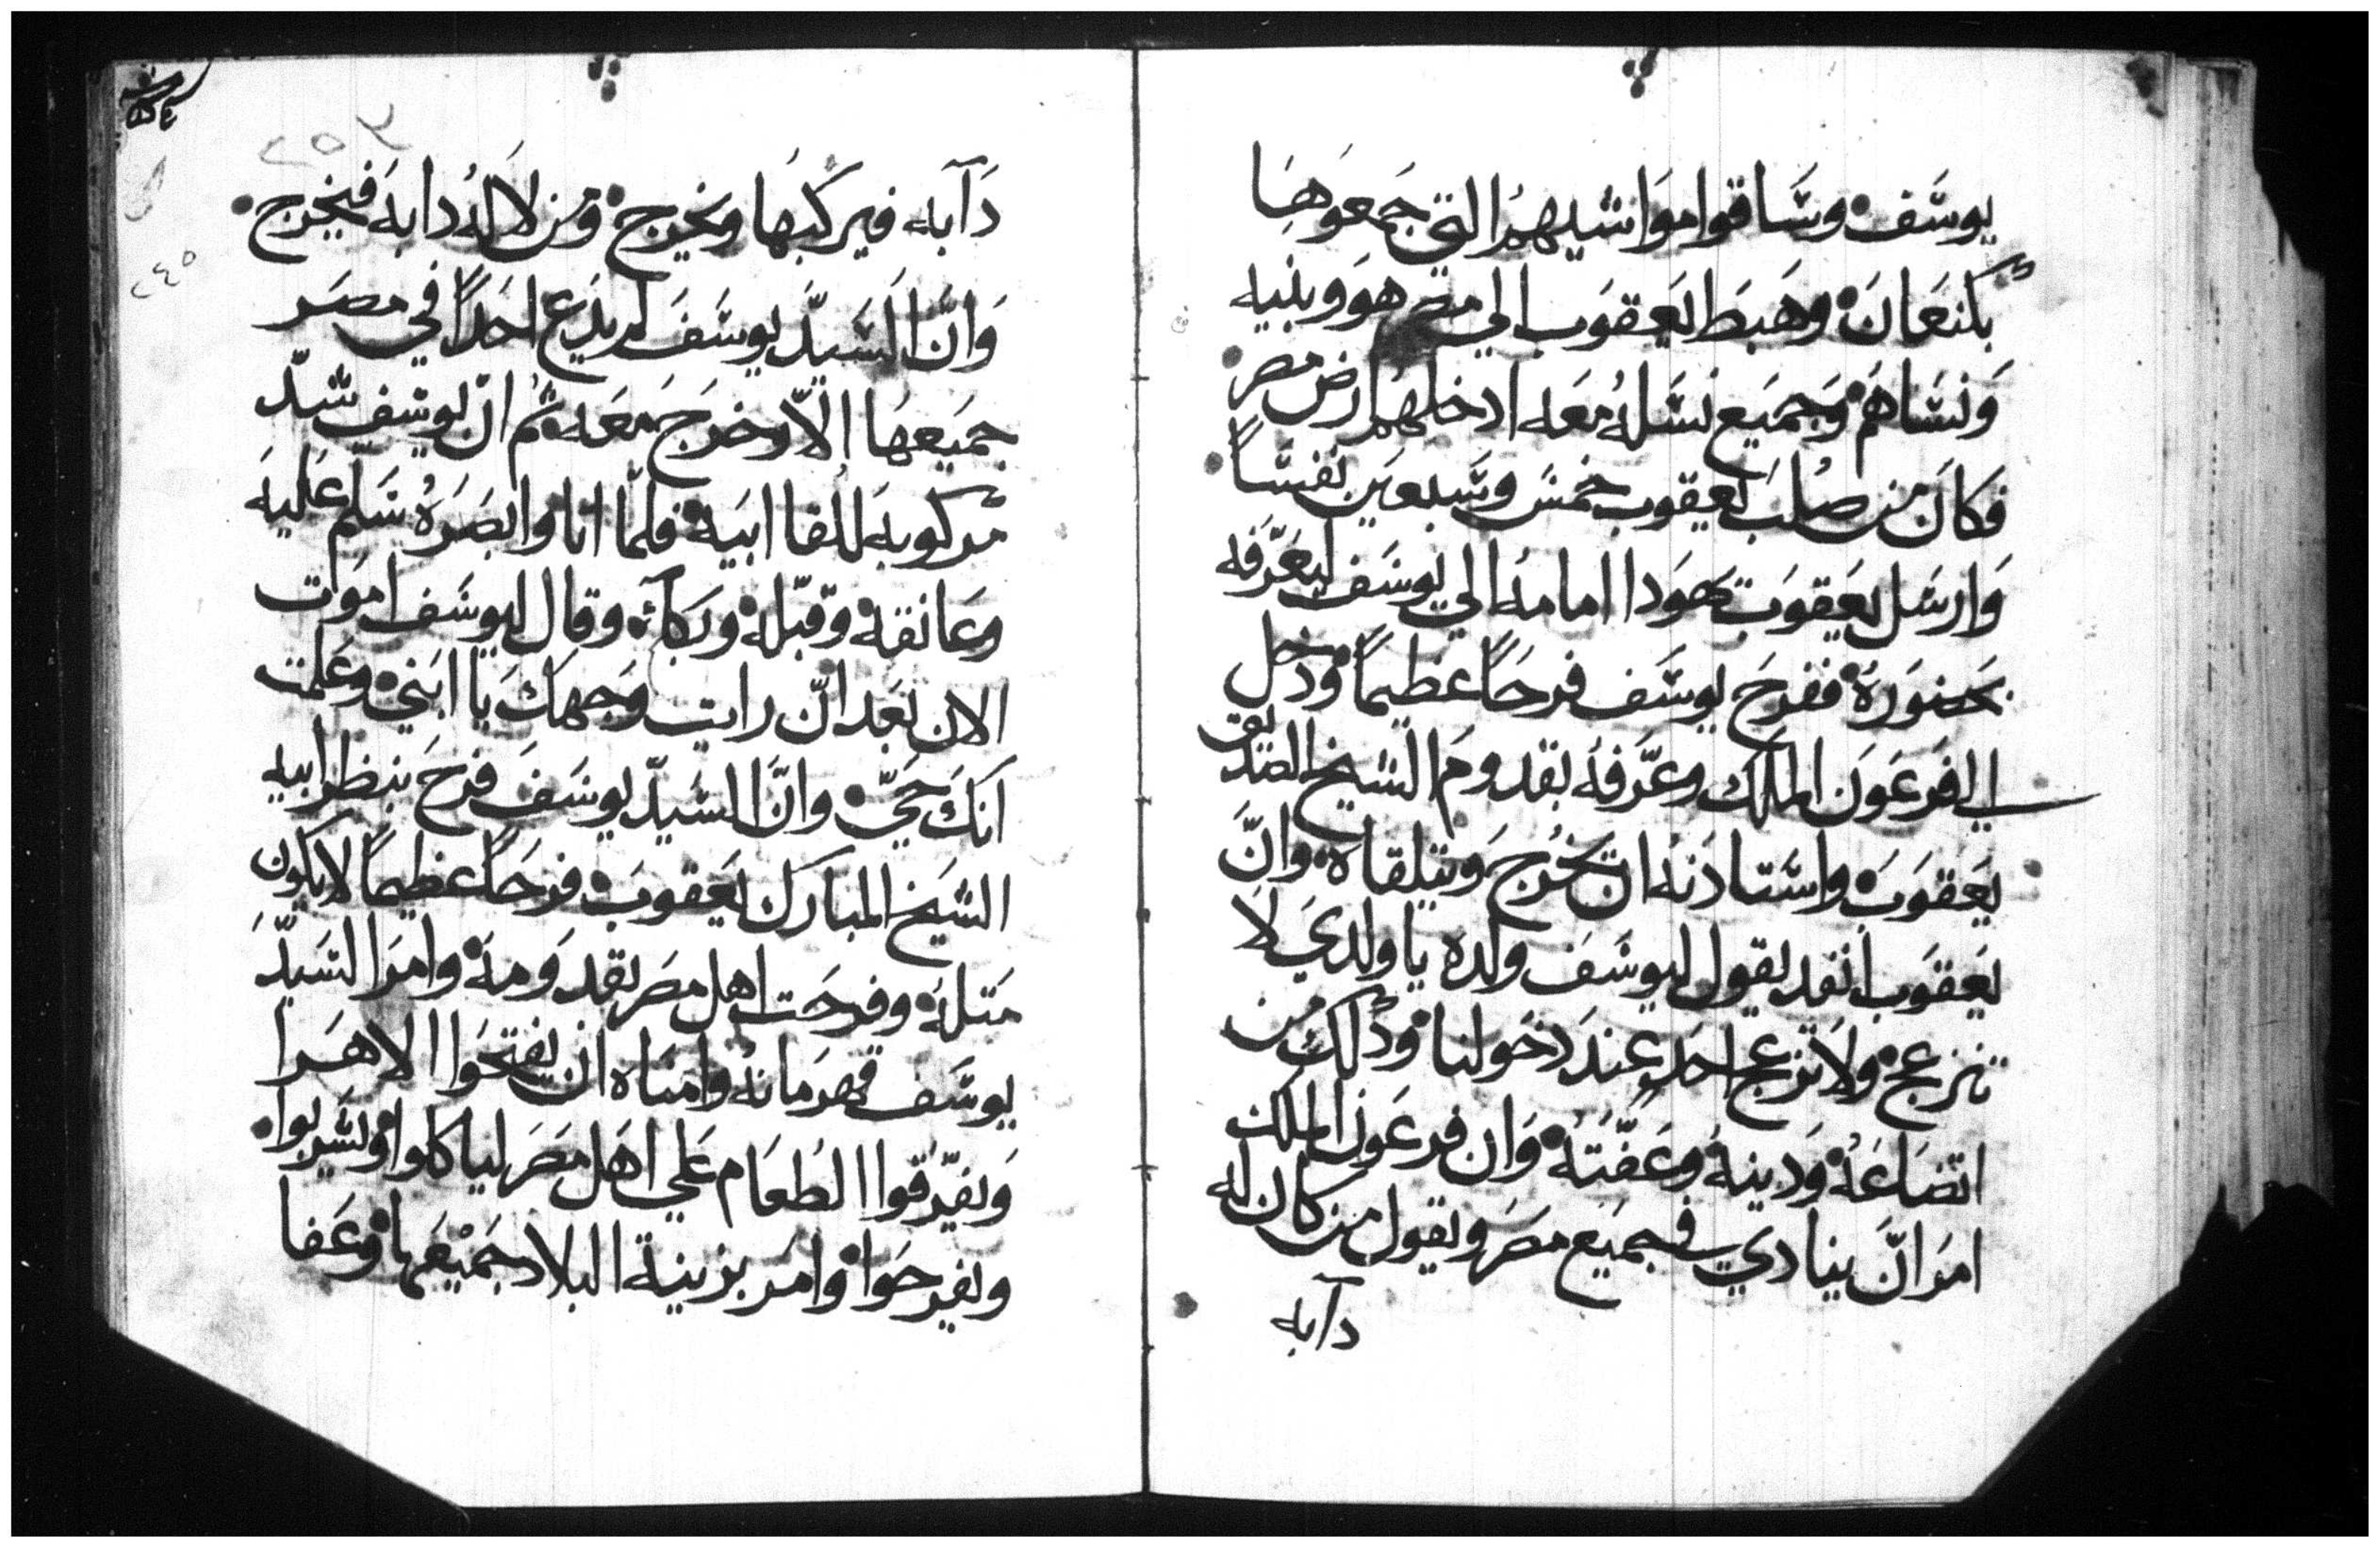 يوسَف • وسَاقوا مَوَاشيهمُ التي جمَعوهَا
بكنعَانَ • وهَبَط يَعقوَب الي مصر هوَ وبنيه
وَنسَاهمُ • وَجميَع نسَلهُ معَه ادخلهُم ارض مصر •
فكانَ من صُلبَ يعقوب خمسَ وسَبعيَن نفسَاً •
وَارسَل يعَقوَب يهوَدا امامهُ الي يوسَف ليعَرّفه
بحضوَرهُ • ففرحَ يوسَف فرحَاً عظيماً • ودخل
الي فرعَونَ الملك وعرَّفهُ بقدومَ الشيخ الصديق
يعَقوَبَ • واسَتادنهُ ان يخرُجَ وَيتلقاهُ • وانَّ
يعَقوَب انفد يقول ليوسَفَ ولده يا ولديَ لاَ
تنزعج • ولاَ تزعج احَد عندَ دخولنا • وذلك من
اتضاعَهُ • وَدينهُ وعَفّتهُ • وَان فرعَون الملك
امَر انَّ ينادي في جميَع مصَر ويقول من كان له
دآبه
٢٥٤
٢٤٥
دَآبه فيركبهَا ويخرج • ومن لا لهُ دابهَ فيخرج •
وَانَّ السَّيدّ يوسَفَ لم يدَع احَداً في مصَر
جميَعهَا الاّ وخرَجَ معَه • ثم انّ يوسَف شدّ
مركوبهَ للقا ابيَه • فلمّا اتا وابصَرهُ سَلم عَليهَ
وعَانقهُ • وقبّلهُ • وبَكاَ • وقال ليوسَف امَوت
الان بعَد انّ رايت وَجهكَ يا ابَني • وعَلمت
انكَ حَيّ • وانَّ السَيدّ يوسَفَ فرحَ بنظر ابيه
الشيَخ المبَارك يَعقوبَ • فرحَاً عظيماً لا يكون
متلهُ • وفرحَت اهل مصَر بقدَومهَ • وامَر السَيدّ
يوسَف قهرمَانهُ وامنَاه ان يفتحَوا الاهَرا
وَيفرّقوا الطعَام عَلي اهَل مصَر لياكلوا • ويشَربوا •
ويفرحَوا • وامَر بزينة البلاد جميَعهَا • وعَفا